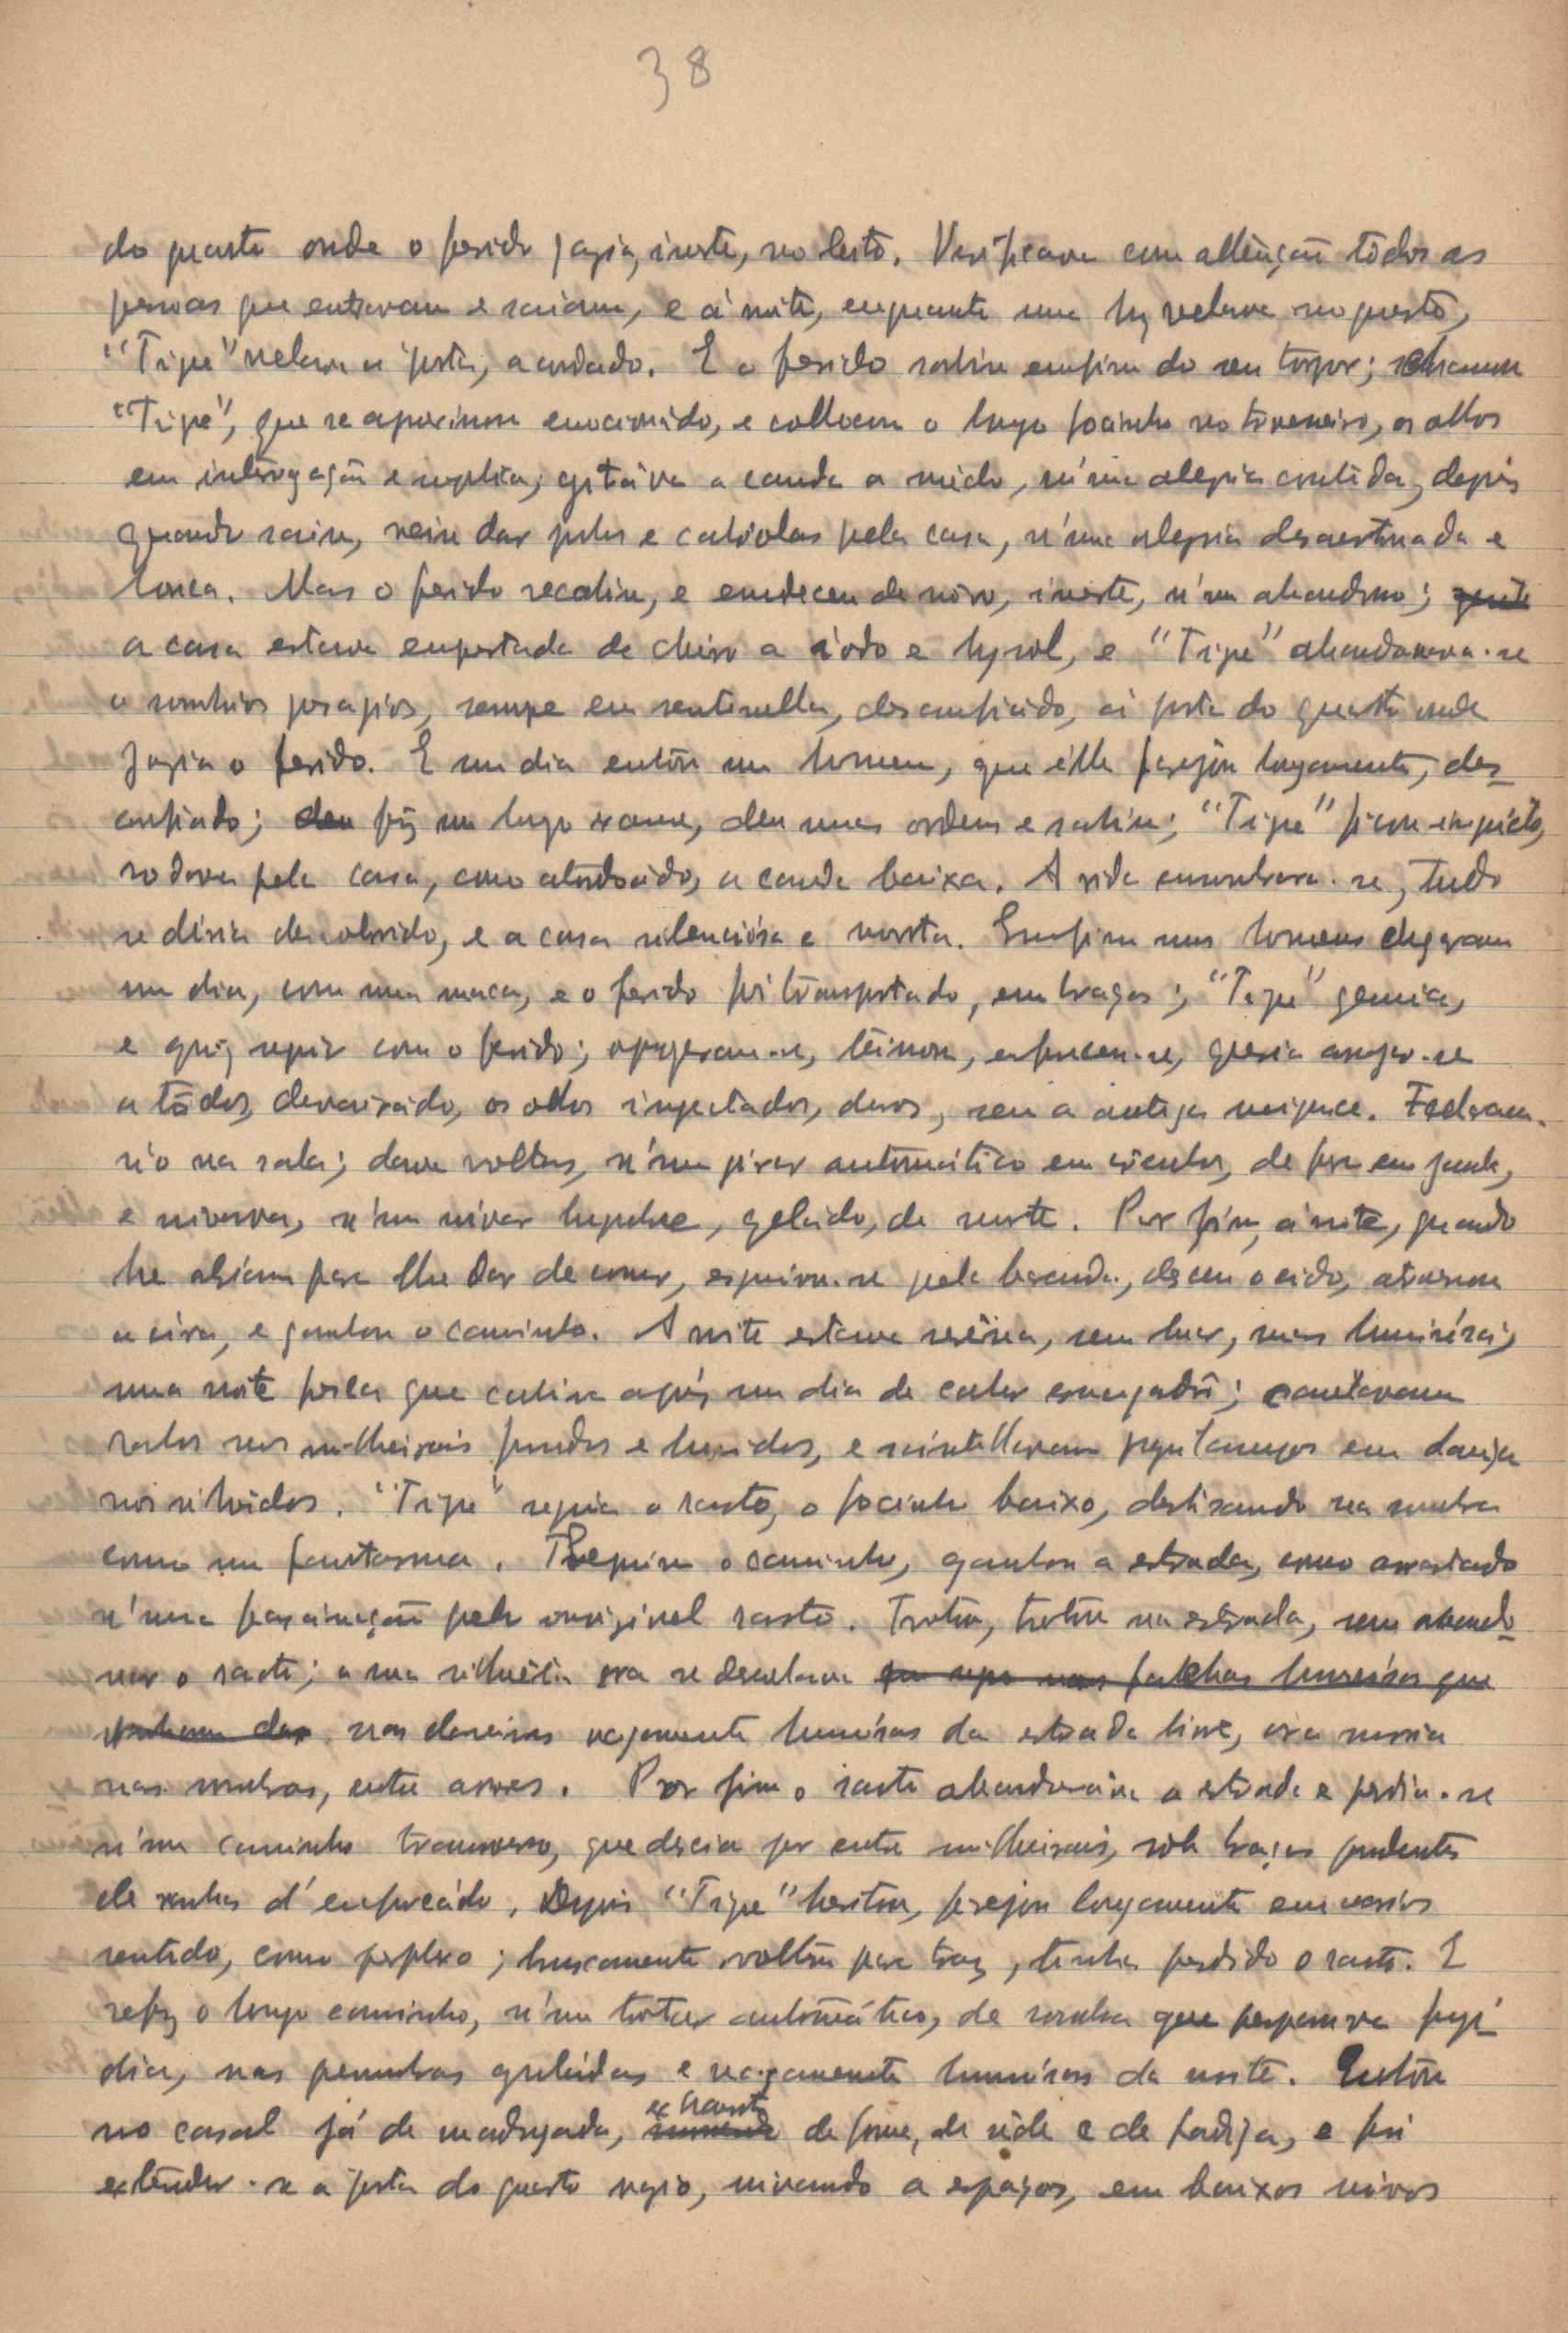 38
do quarto onde o ferido jazia, inerte, no leito. Verificava com attenção tôdos as
pessoas que entravam e saíam, e á noite, enquanto uma luz velava no quarto,
"Tigre" velava á porta, acordado. E o ferido sahiu emfim do seu torpor; chamou
"Tigre", que se aproximou emocionádo, e collocou o longo focinho no travesseiro, os olhos
em interrogação e suplica; agitáva a cauda a mêdo, n'úma alegria contida, depois
quando saíu, veiu dar pulos e cabriolas pela casa, n'úma alegria desatinada e
louca. Mas o ferido recahiu, e emudeceu de nôvo, inerte, n'úm abandono;
a casa estava empestada de cheiro a iôdo e lysol, e "Tigre" abandonava-se
a sombrios presagios, sempre em sentinella, desconfiádo, á porta do quarto onde
jazia o ferido. E um dia entrôu um homem, que êlle farejou longamente, des-
confiado; fêz um longo exame, deu umas ordens e sahiu; "Tigre" ficou inquiéto,
rodava pela casa, como atordoádo, a cauda baixa. A vida ensombrava-se, tudo
se diria denolvido, e a casa silenciósa e morta. Emfim uns homens chegaram
um dia, com uma maca, e o ferido foi transportado, em braços; "Tigre" gemia,
e quiz seguir com o ferido; opuzeram-se, teimou, enfureceu-se, queria
a tôdos, desvairádo, os olhos injectados, duros, sem a antiga meiguice. Fecharam-
n'o na sala; dava voltas, n'úm girar automático em circulos, de fera em jaula,
e uivava, n'úm uivar lugubre, geládo, de morte. Por fim, á noite, quando
lhe abriam para lhe dar de comer, esquivou-se pela varanda, desceu o eido, atravessou
a eira, e ganhou o caminho. A noite estava seréna, sem luar, mas luminósa;
uma noite fresca que cahira após um dia de calor esmagadôr; cantavam
ralos nos milheirais fundos e humidos, e scintillavam pyrilampos em dança
nos silvádos. "Tigre" seguia o rasto, o focinho baixo, deslisando na sombra
como um fantasma. Seguiu o caminho, ganhou a estrada, como arrastado
n'úma fascinação pelo invisivel rasto. Trotou, trotôu na estrada, sem abando-
nar o rasto; a sua silhuêta ora se desenhava
nas clareiras vagamente luminósas da estrada livre, ora sumia
nas sombras, entre arvores. Por fim o rasto abandonáva a estrada e perdia-se
n'úm caminho transverso, que descia por entre milheirais, sob braços pendentes
de vinhas d'enforcádo. Depois "Tigre" hesitou, farejou longamente em varios
sentido, como perplexo; bruscamente voltôu para traz, tinha perdido o rasto. E
refez o longo caminho, n'úm trotar automático, de sombra que perpassava fugi-
dia, nas penumbras geládas e vagamente luminósas da noite. Entrôu
no casal já de madrugada, exhausto de fome, de sêde e de fadiga, e foi
extender-se á porta do quarto vazio, uivando a espaços, em baixos uivos